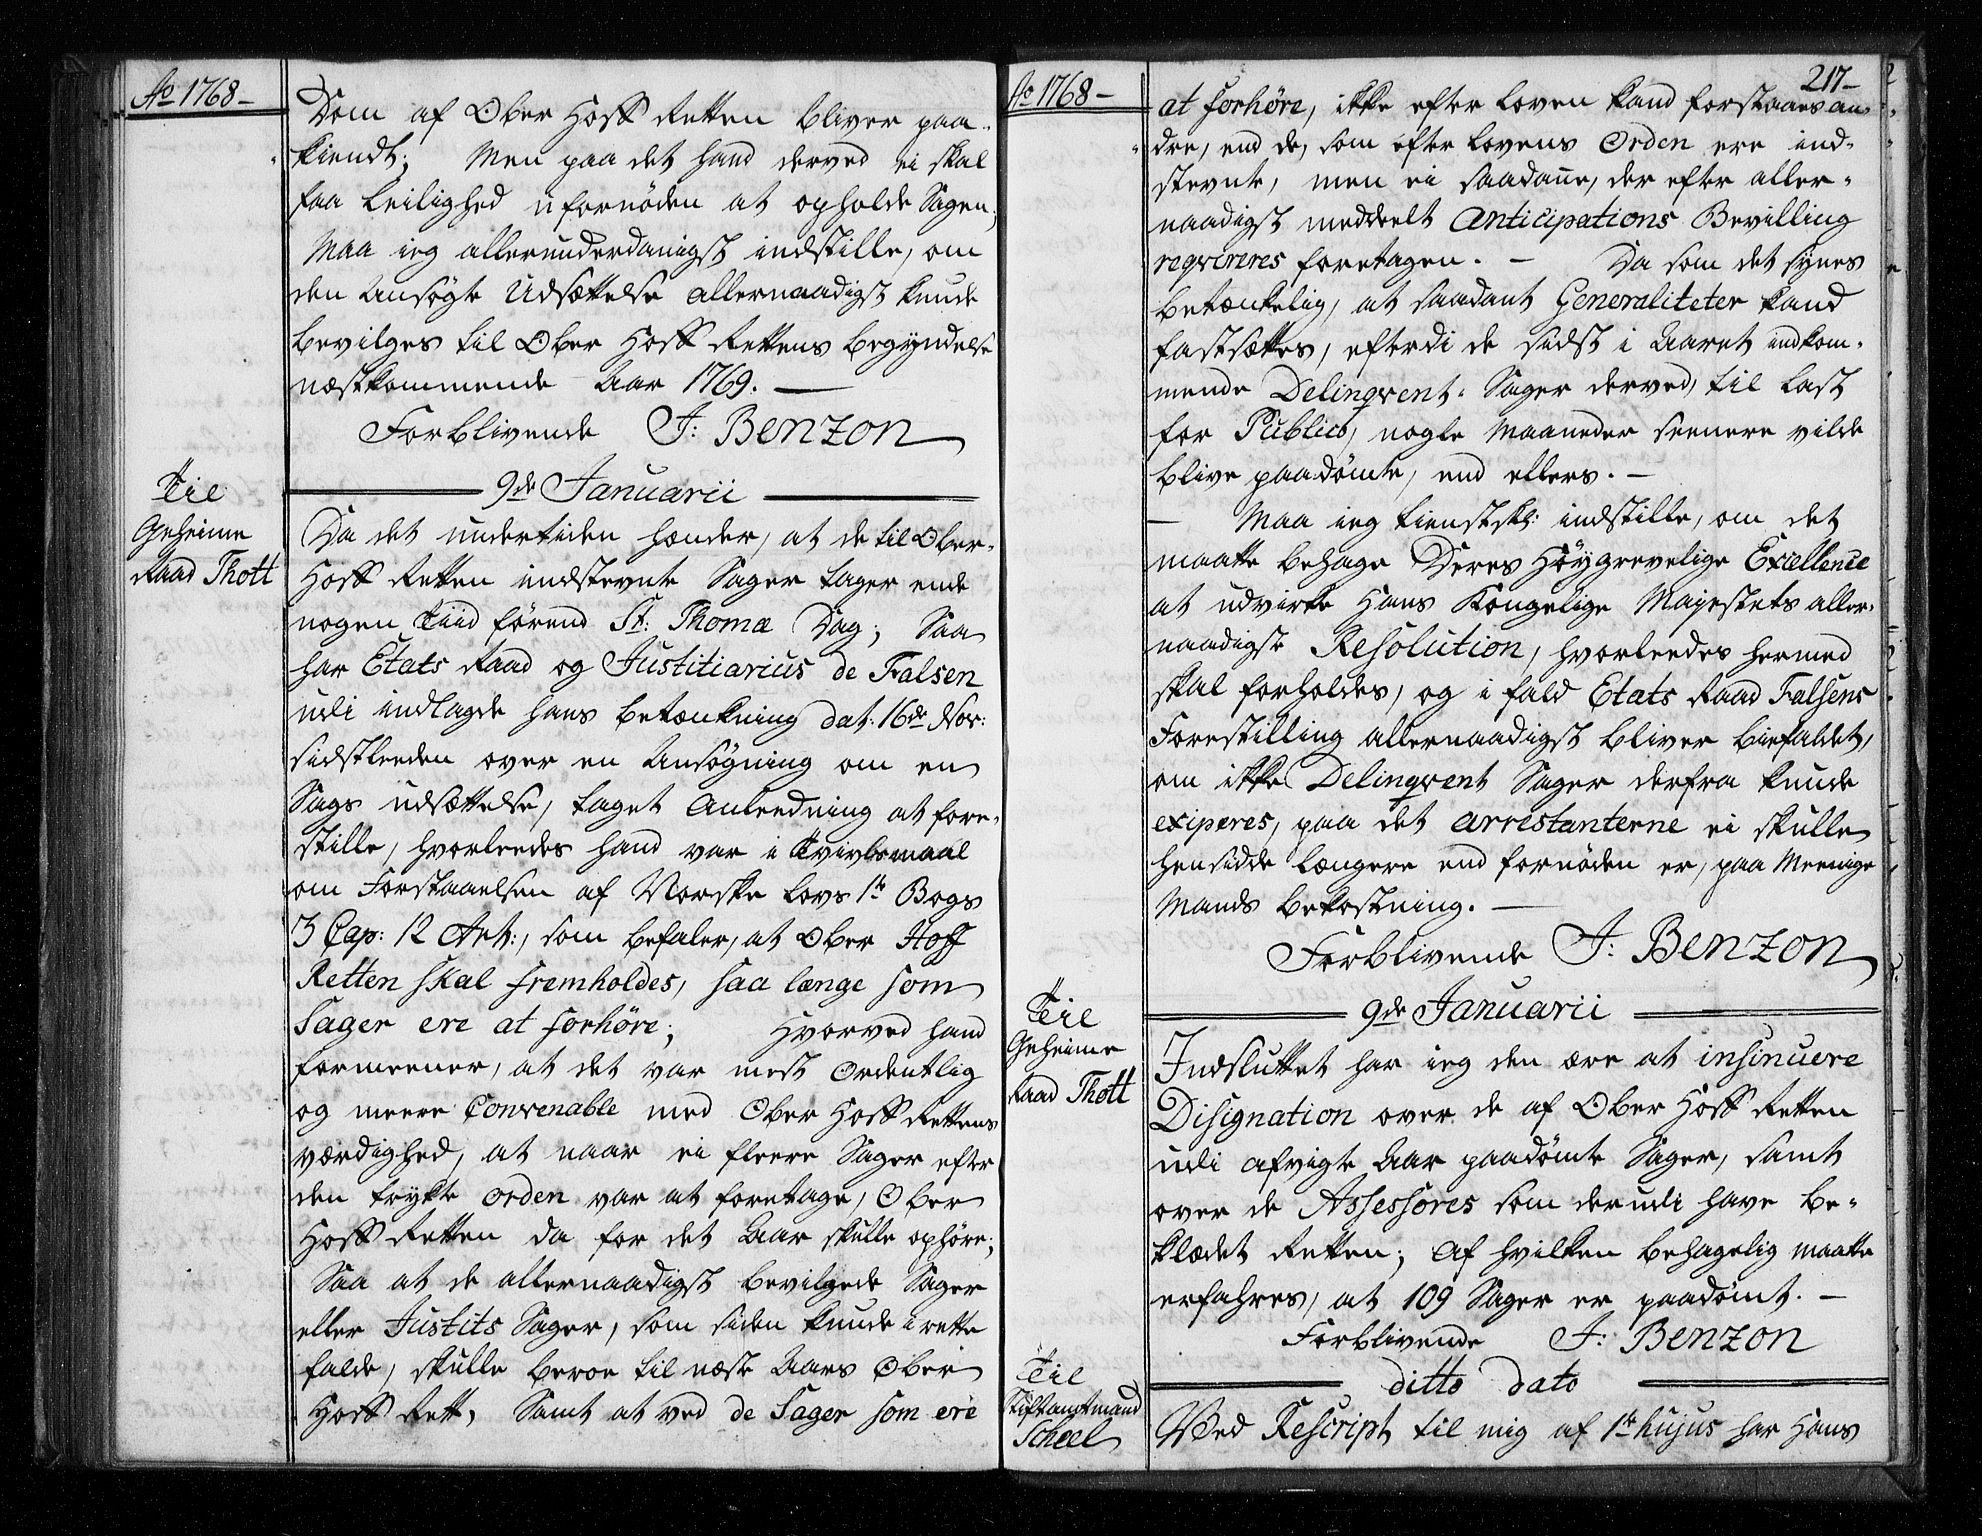 Ao 1768-
Dom af Ober Hoff Retten bliver paa-
kiendt; Men paa det hand derved ei skal
faa Leilighed ufornöden at opholde Sagen;
Maa ieg allerunderdanigst indstille, om
den Ansögte Udsættelse allernaadigst kunde
bevilges til Ober Hoff Rettens begyndelse
næstkommende Aar 1769. —
Forblivende J: Benzon
9de Januarii
Til
Geheime
Raad Thott
Da det undertiden hænder, at de til Ober-
Hoff Retten indstevnte Sager tager ende
nogen Tiid förend St: Thomæ Dag; Saa
har Etats Raad og Justitiarius de Falsen
udi indlagde hans betænkning dat: 16de Nov:
sidstleeden over en Ansögning om en
Sags udsættelse, taget Anleedning at fore-
stille, hvorleedes hand var i Tvivlsmaal
om Forstaaelsen af Norske Lovs 1te Bogs
3 Cap: 12 Art:, som befaler, at Ober Hoff
Retten skal fremholdes, saa længe som
Sager ere at forhöre; Hvorved hand
formeener, at det var mest Ordentlig
og meere Convenable med Ober Hoff Rettens
værdighed, at naar ei fleere Sager efter
den trykte Orden var at foretage, Ober
Hoff Retten da for det Aar skulle ophöre;
Saa at de allernaadigst bevilgede Sager
eller Justits Sager, som siden kunde i rette
falde, skulle beroe til næste Aars Ober
Hoff Rett, Samt at ved de Sager som ere
217-
Ao 1768-
at forhöre, ikke efter Loven kand forstaaes an-
dre, end de, som efter Lovens Orden ere ind-
stevnte, men ei saadane, der efter aller-
naadigst meddeelt Anticipations Bevilling
reqvireres foretagen. — Da som det synes
betænkelig, at saadant Generaliteter kand
fastsættes, efterdi de sidst i Aaret indkom-
mende Delinqvent-Sager derved, til Last
for Publico, nogle Maaneder seenere vilde
blive paadömte, end ellers. —
— Maa ieg tienstskl: indstille, om det
maatte behage Deres Höygrevelige Excellence
at udvirke Hans Kongelige Majestets aller-
naadigste Resolution, hvorleedes hermed
skal forholdes, og i fald Etats Raad Falsens
Forestilling allernaadigst bliver biefaldet,
om ikke Delinqvent Sager derfra kunde
exiperes, paa det arrestanterne ei skulle
hensidde længere end fornöden er, paa Meenige
Mands bekostning. —
Forblivende J: Benzon
9de Januarii
Til
Geheime
Raad Thott
Indsluttet har ieg den ære at insinuere
Disignation over de af Ober Hoff Retten
udi afvigte Aar paadömte Sager, samt
over de Assessores som derudi have be-
klædet Retten; Af hvilken behagelig maatte
erfahres, at 109 Sager er paadömt. —
Forblivende J: Benzon
ditto dato
Til
Stiftamtmand
Scheel
Ved Rescript til mig af 1te hujus har Hans